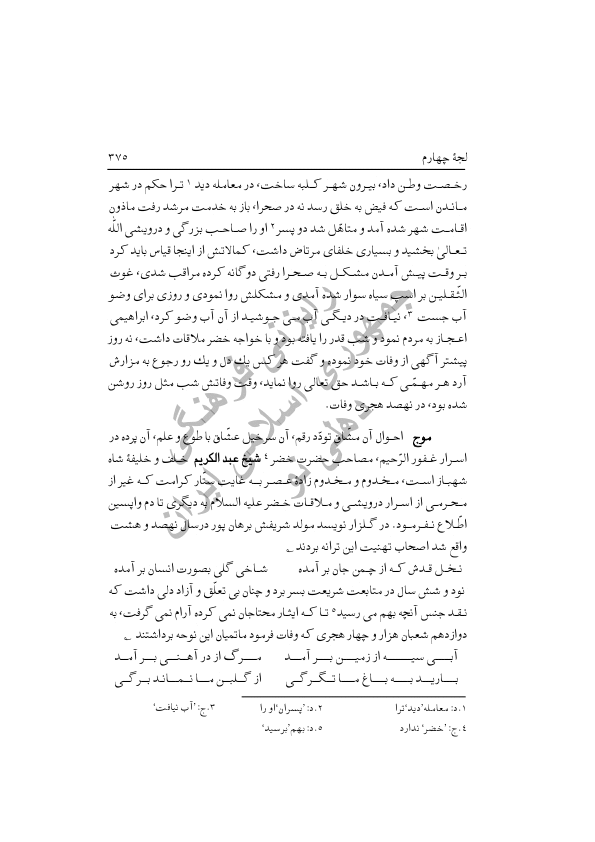 لجۀ چهارم ۳۷۵
رخصت وطن داد، بیرون شهر کلبه ساخت، در معامله دید ۱ ترا حکم در شهر
ماندن است که فیض به خلق رسد نه در صحرا، باز به خدمت مرشد رفت ماذون
اقامت شهر شده آمد و متاهّل شد دو پسر۲ او را صاحب بزرگی و درویشی اللّٰه
تعالیٰ بخشید و بسیاری خلفای مرتاض داشت، کمالاتش از اینجا قیاس باید کرد
بر وقت پیش آمدن مشکل به صحرا رفتی دوگانه کرده مراقب شدی، غوث
الثّقلین بر اسب سیاه سوار شده آمدی و مشکلش روا نمودی و روزی برای وضو
آب جست ۳، نیافت در دیگی آب می جوشید از آن آب وضو کرد، ابراهیمی
اعجاز به مردم نمود و شب قدر را یافته بود و با خواجه خضر ملاقات داشت، نه روز
پیشتر آگهی از وفات خود نموده و گفت هر کس یك دل و یك رو رجوع به مزارش
آرد هر مهمّی که باشد حق تعالی روا نماید، وقت وفاتش شب مثل روز روشن
شده بود، در نهصد هجری وفات.
موج احوال آن مشّاق تودّد رقم، آن سرخیل عشّاق با طوع و علم، آن پرده در
اسرار غفور الرّحیم، مصاحب حضرت خضر ۴ شیخ عبد الکریم خلف و خلیفۀ شاه
شهباز است، مخدوم و مخدوم زادۀ عصر به غایت ستّار کرامت که غیر از
محرمی از اسرار درویشی و ملاقات خضر علیه السلام به دیگری تا دم واپسین
اطّلاع نفرمود. در گلزار نویسد مولد شریفش برهان پور درسال نهصد و هشت
واقع شد اصحاب تهنیت این ترانه بردند
نخل قدش که از چمن جان بر آمده شاخی گلی بصورت انسان بر آمده
نود و شش سال در متابعت شریعت بسر برد و چنان بی تعلّق و آزاد دلی داشت که
نقد جنس آنچه بهم می رسید۵ تا که ایثار محتاجان نمی کرده آرام نمی گرفت، به
دوازدهم شعبان هزار و چهار هجری که وفات فرمود ماتمیان این نوحه برداشتند
آبی سیه از زمین بر آمد مرگ از در آهنی بر آمد
بارید به باغ ما تگرگی از گلبن ما نماند برگی
۱.د: معامله'دید'ترا ۲.د: 'پسران'او را ۳.ج: 'آب نیافت'
۴.ج: 'خضر' ندارد ۵.د: بهم'برسید'
رایزنی فرهنگی
جمهوری اسلامی ایران
دهلی نو